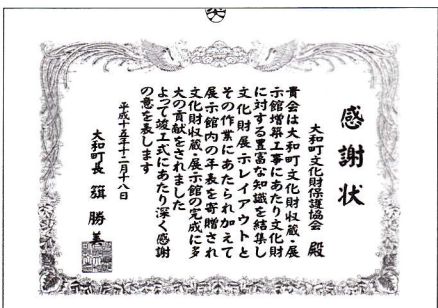 感謝状
大和町文化財保護協会 殿
貴会は大和町文化財収蔵・展
示館増築工事にあたり文化財
に対する豊富な知識を結集し
文化財展示レイアウトと
その作業にあたられ加えて
展示館内の年表を寄贈され
文化財収蔵・展示館の完成に多
大の貢献をされました
よって竣工式にあたり深く感謝
の意を表します
平成十五年十二月十八日
大和町長 籏 勝美